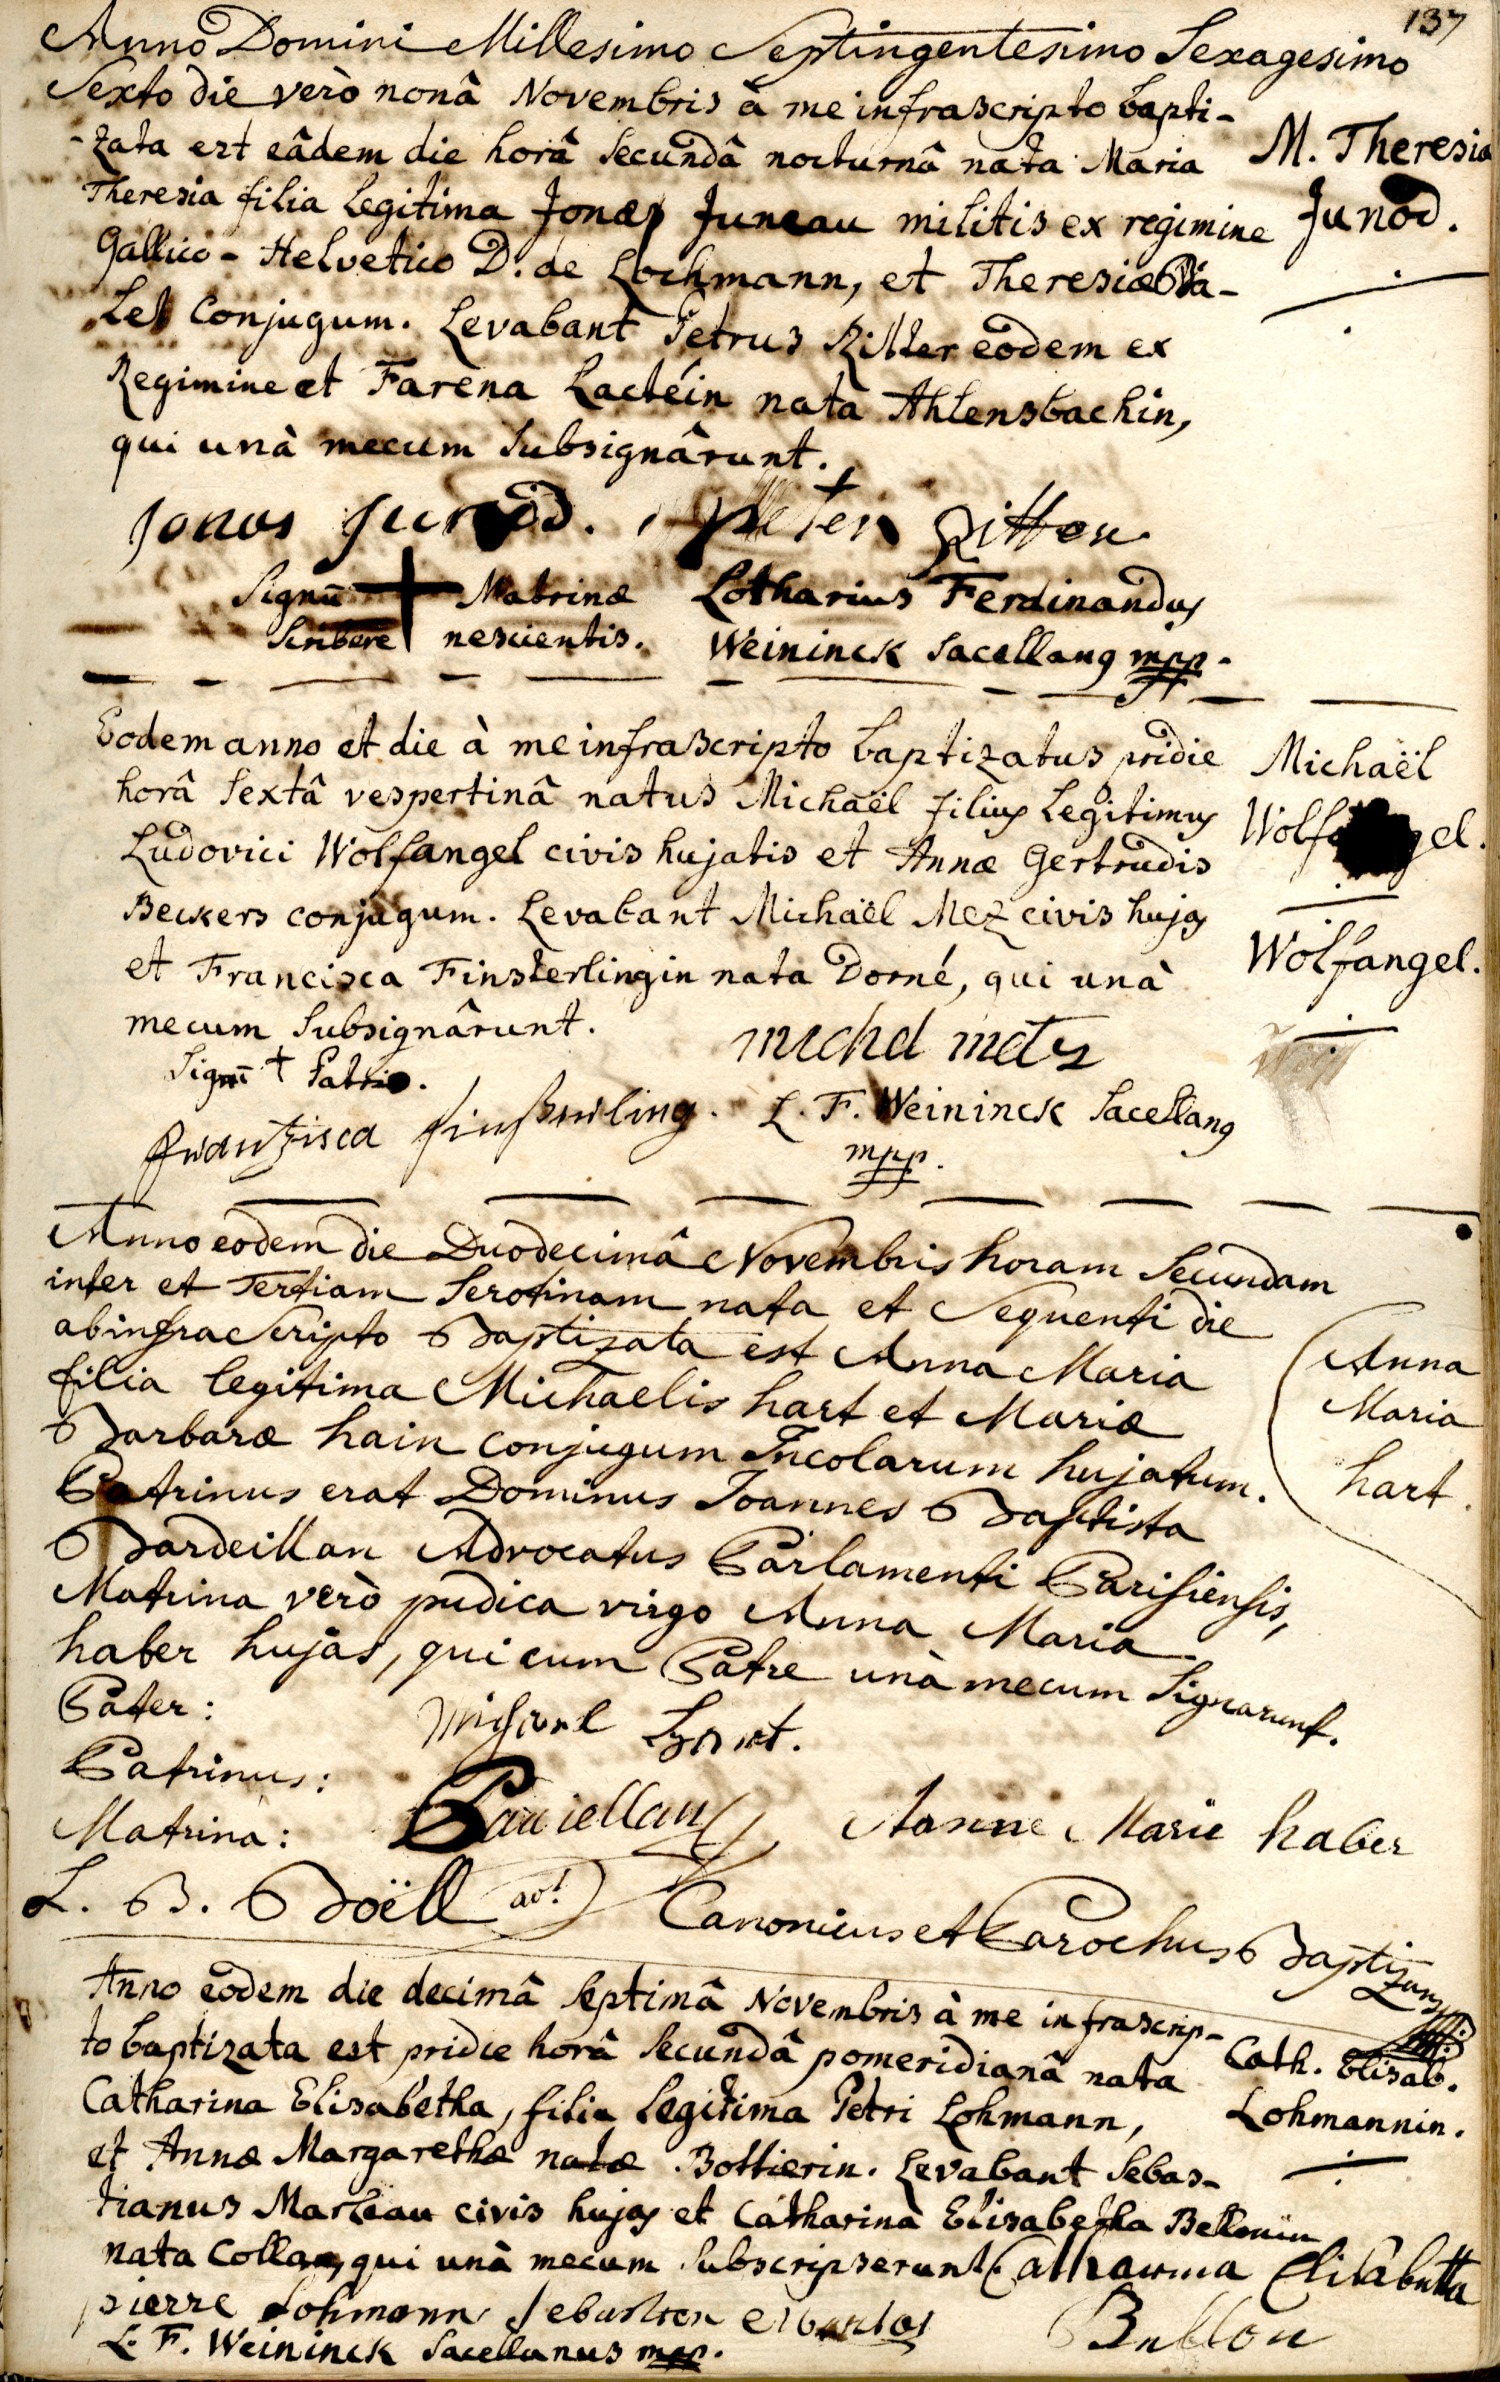 137
Anno Domini Millesimo Septingentesimo Sexagesimo
Sexto die verò nonâ Novembris à me infrascripto bapti-
-zata est eâdem die horâ secundâ nocturnâ nata Maria
Theresia filia legitima Jonæ Juneau militis ex regimine
Gallico-Helvetico D. de Lochmann, et Theresiæ Va-
let conjugum. Levabant Petrus Ritter eodem ex
Regimine et Farena Lactéin nata Ahlensbachin,
qui unà mecum subsignârunt.
M. Theresia
Junod.
Jonas Junod. Peter Ritter
Signū + Matrinæ
scribere nescientis.
Lotharius Ferdinandus
Weininck sacellanus mpp.
Eodem anno et die à me infrascripto baptizatus pridie
horâ sextâ vespertinâ natus Michaël filius legitimus
Ludovici Wolfangel civis hujatis et Annæ Gertrudis
Beckers conjugum. Levabant Michaël Mez civis hujas
et Francisca Finsterlingin nata Dorné, qui unà
mecum subsignârunt.
Michaël
Wolfangel.
Wolfangel.
michel metz
Signū + Patris.
Frantzisca Finsterling. L. F. Weininck sacellanus
mpp.
Anno eodem die Duodecimâ Novembris horam secundam
inter et Tertiam serotinam nata et sequenti die
ab infrascripto Baptizata est Anna Maria
filia legitima Michaelis hart et Mariæ
Barbaræ hain conjugum Incolarum hujatum.
Patrinus erat Dominus Joannes Baptista
Bardeillan Advocatus Parlamenti Parisiensis,
Matrina verò pudica virgo Anna Maria
haber hujas, qui cum Patre unà mecum signarunt.
Anna
Maria
hart.
Pater: Michael Hart.
Patrinus:
Matrina: Anne Marie haber
L. B. Boëll Canonicus et Parochus Baptizans mpp.
Anno eodem die decimâ septimâ Novembris à me infrascrip-
to baptizata est pridie horâ secundâ pomeridianâ nata
Catharina Elisabetha, filia legitima Petri Lohmann,
et Annæ Margarethæ natæ Bottierin. Levabant Sebas-
tianus Marteau civis hujas et Catharina Elisabetha Bellonin
nata Collan, qui unà mecum subscripserunt.
Cath. Elisab.
Lohmannin.
Catharina Elisabetta
Bellon
pierre Lohmann Sebastien
L. F. Weininck sacellanus mpp.